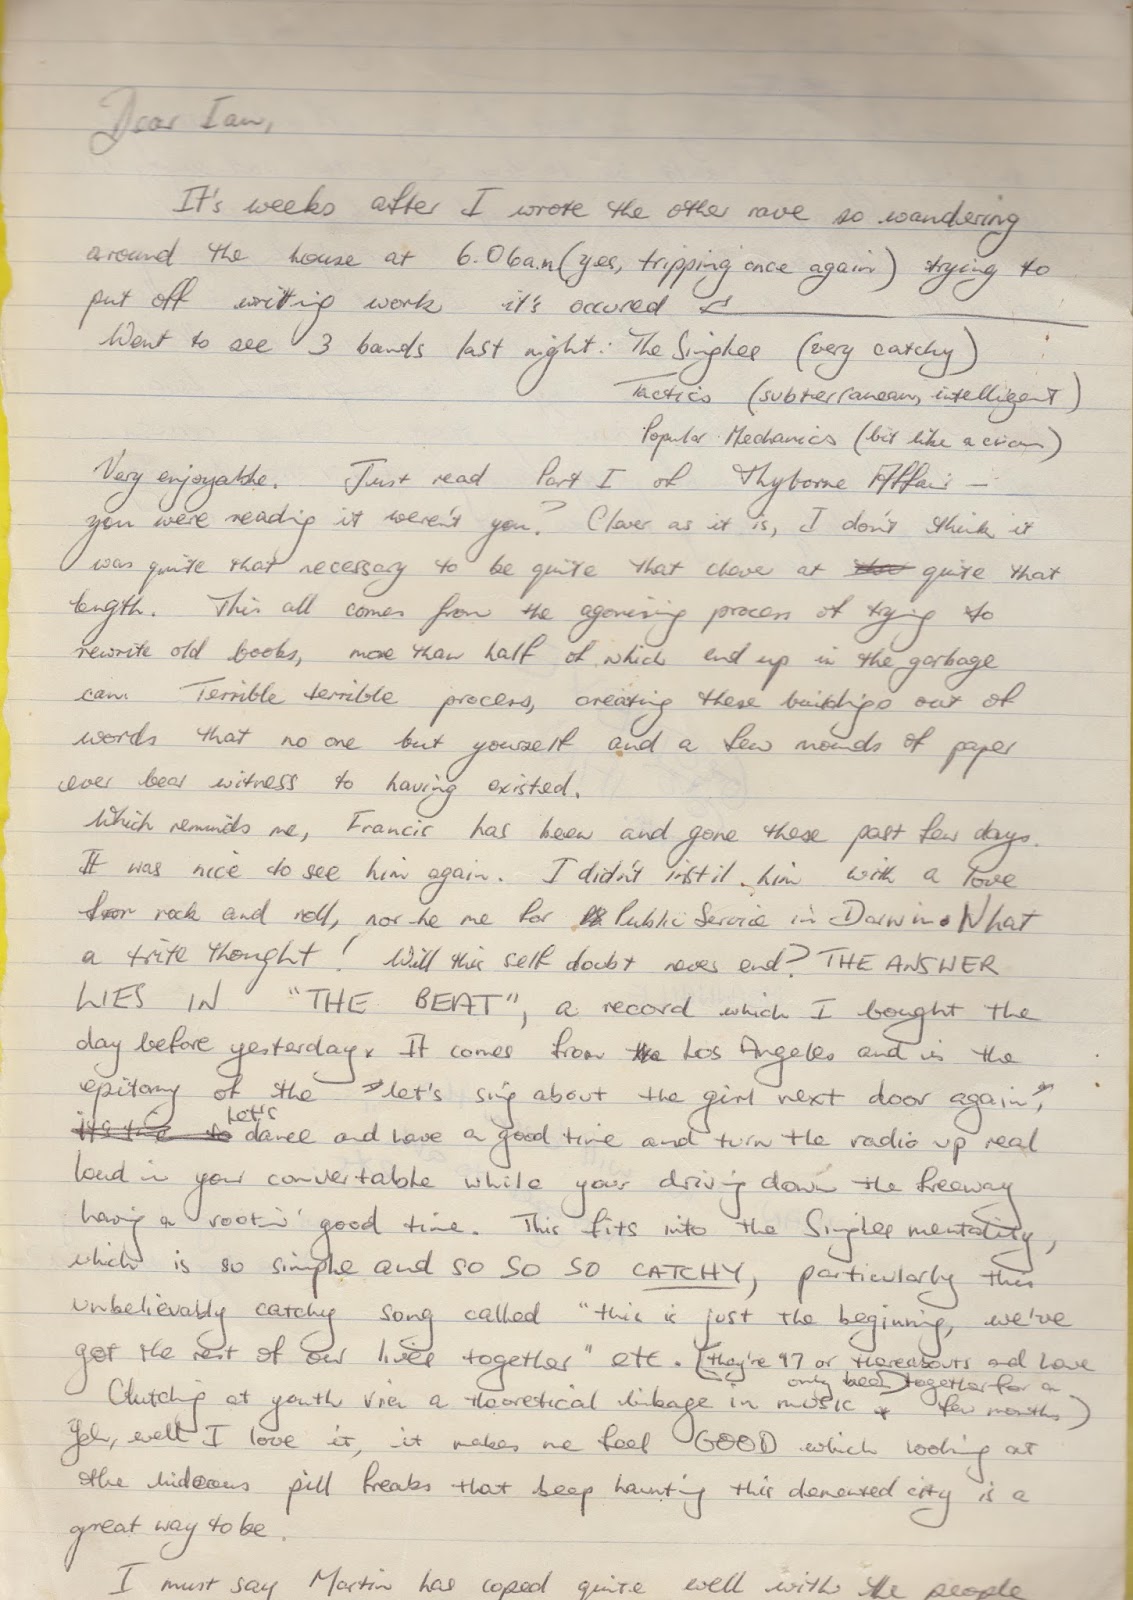 Dear Ian,
It's weeks after I wrote the other rave so wandering
around the house at 6.06am (yes, tripping once again) trying to
put off writing work it's occured
Went to see 3 bands last night: The Singles (very catchy)
Tactics (subterranean, intelligent)
Popular Mechanics (bit like a cicus)
Very enjoyable. Just read Part I of Thyborne Affair -
you were reading it weren't you? Clever as it is, I don't think it
was quite that necessary to be quite that clever at quite that
length. This all comes from the agonising process of trying to
rewrite old books, more than half of which end up in the garbage
can. Terrible terrible process, creating these buildings out of
words that no one but yourself and a few mounds of paper
ever bear witness to having existed.
Which reminds me, Francis has been and gone these past few days.
It was nice to see him again. I didn't instil him with a love
for rock and roll, nor he me for Public Service in Darwin. What
a trite thought! Will this self doubt never end? THE ANSWER
LIES IN "THE BEAT", a record which I bought the
day before yesterday. It comes from Los Angeles and is the
epitomy of the "let's sing about the girl next door again",
let's dance and have a good time and turn the radio up real
loud in your convertable while your driving down the freeway
having a rootin' good time. This fits into the Singles mentality,
which is so simple and so SO SO CATCHY, particularly this
unbelievably catchy song called "this is just the beginning, we've
got the rest of our lives together" etc. (they're 97 or thereabouts and have
only been together for a
Clutching at youth via a theoretical linkage in music few months)
Yeh, well I love it, it makes me feel GOOD which looking at
the hideous pill freaks that keep haunting this demented city is a
great way to be.
I must say Martin has coped quite well with the people